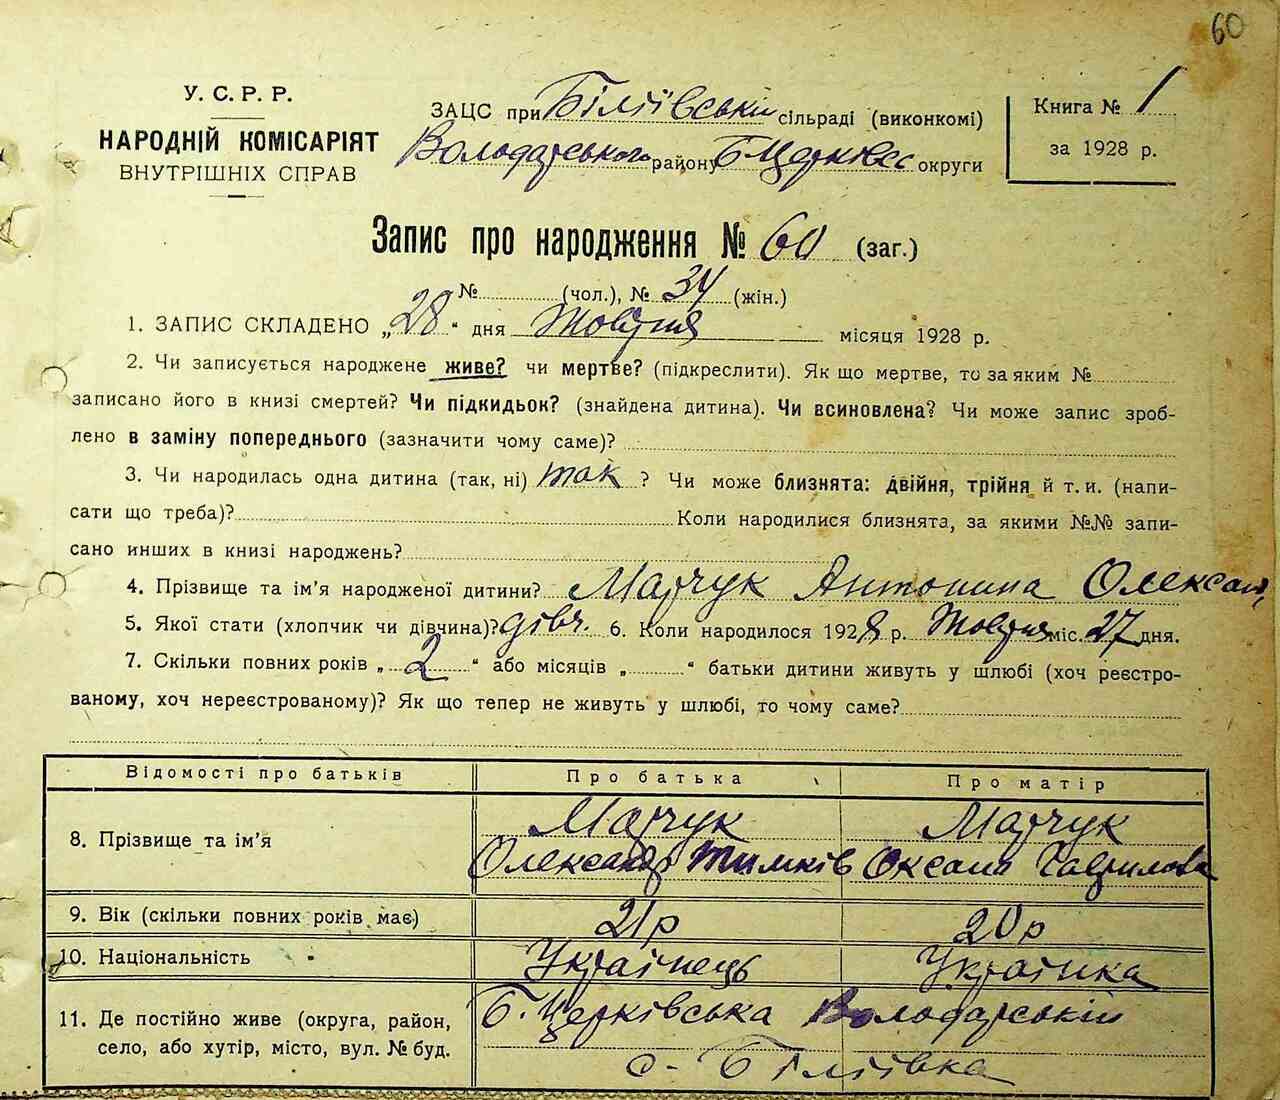 60
У. С. Р. Р.
НАРОДНІЙ КОМІСАРІЯТ
ВНУТРІШНІХ СПРАВ
ЗАЦС при Біліївській сільраді (виконкомі)
Володарського району Б Церківсс округи
Книга № 1
за 1928 р.
Запис про народження № 60 (заг.)
№ (чол.), № 34 (жін.)
1. ЗАПИС СКЛАДЕНО „28“ дня Жовтня місяця 1928 р.
2. Чи записується народжене живе? чи мертве? (підкреслити). Як що мертве, то за яким №
записано його в книзі смертей? Чи підкидьок? (знайдена дитина). Чи всиновлена? Чи може запис зроб-
лено в заміну попереднього (зазначити чому саме)?
3. Чи народилась одна дитина (так, ні) так ? Чи може близнята: двійня, трійня й т. и. (напи-
сати що треба)? Коли народилися близнята, за якими №№ запи-
сано инших в книзі народжень?
4. Прізвище та ім’я народженої дитини? Марчук Антонина Олексан,
5. Якої стати (хлопчик чи дівчина)? дівч. 6. Коли народилося 1928 р. Жовтня міс. 27 дня.
7. Скільки повних років „2“ або місяців „ “ батьки дитини живуть у шлюбі (хоч реєстро-
ваному, хоч нереєстрованому)? Як що тепер не живуть у шлюбі, то чому саме?
Відомості про батьків Про батька Про матір
8. Прізвище та ім’я Марчук Марчук
Олександр Тимків Оксана Гаврилова
9. Вік (скільки повних років має) 21 р 20 р
10. Національність Українець Українка
11. Де постійно живе (округа, район, Б. Церківська Володарській
село, або хутір, місто, вул. № буд. с. Біліївка